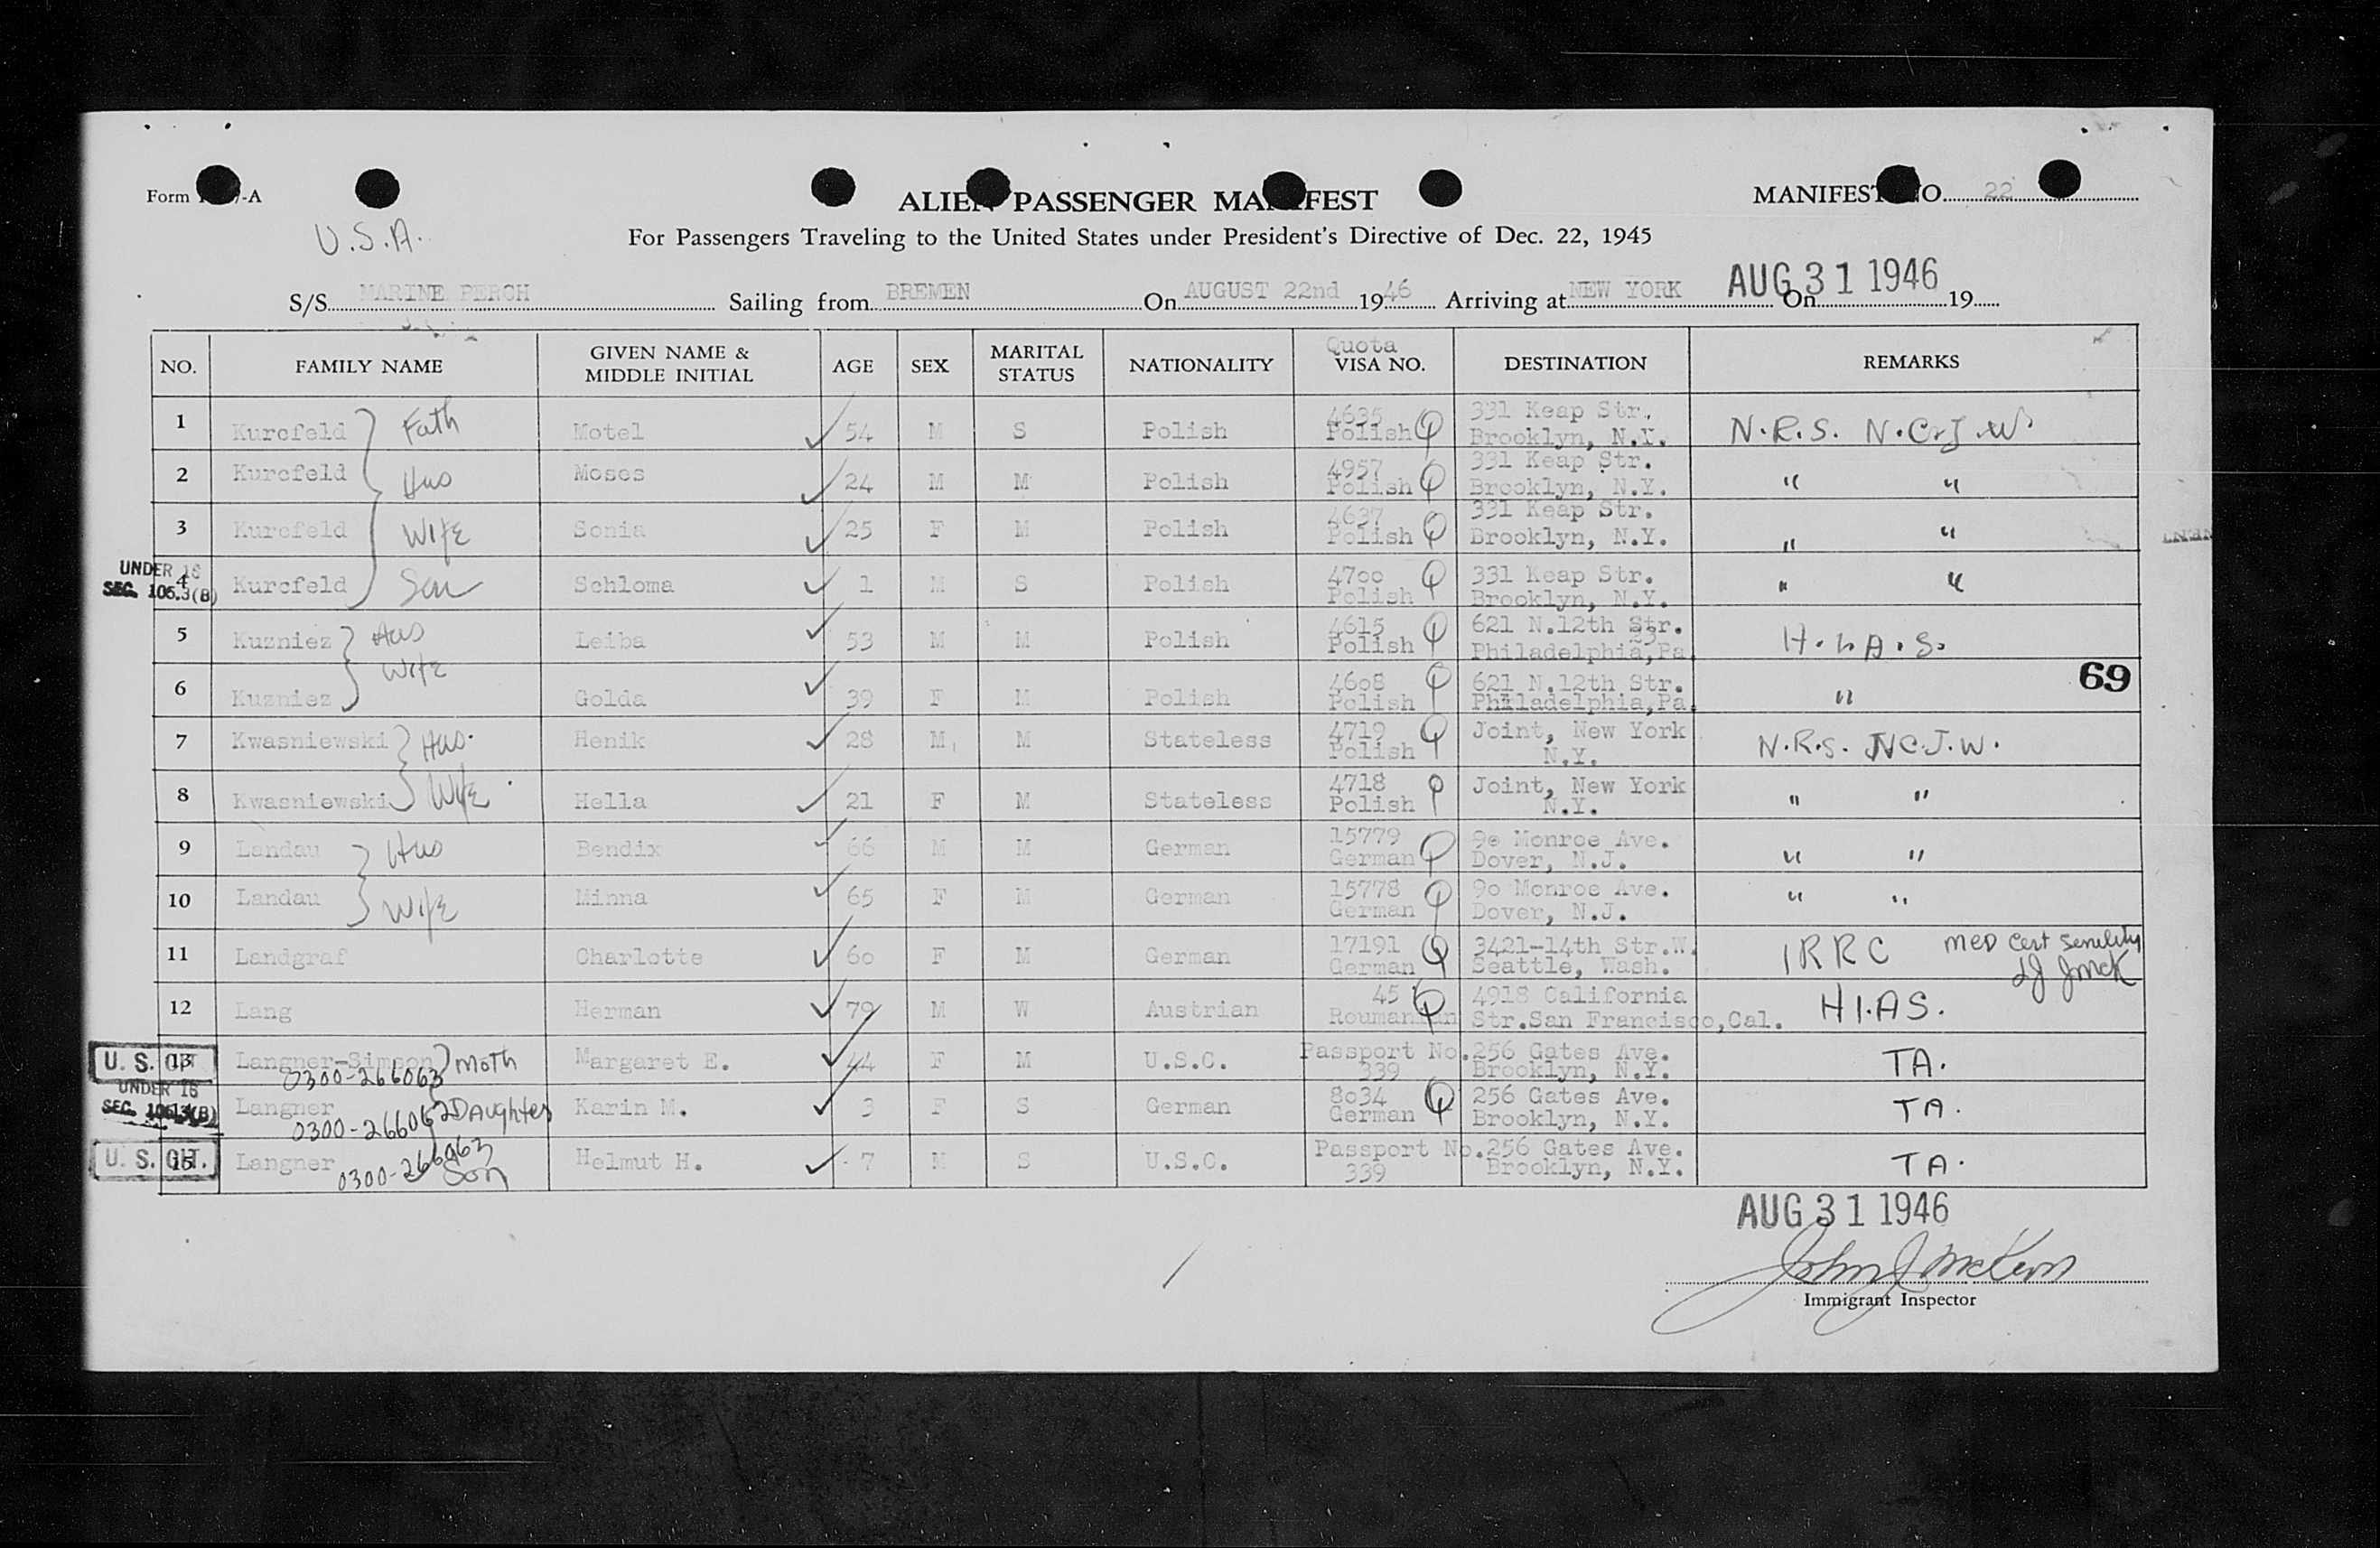 Form -A
ALIEN PASSENGER MANIFEST
MANIFEST NO. 22
U.S.A.
For Passengers Traveling to the United States under President's Directive of Dec. 22, 1945
S/S MARINE PERCH Sailing from BREMEN On AUGUST 22nd 1946 Arriving at NEW YORK On AUG 31 1946 19
NO. FAMILY NAME GIVEN NAME & MIDDLE INITIAL AGE SEX MARITAL STATUS NATIONALITY Quota VISA NO. DESTINATION REMARKS
1 Kurcfeld Fath Motel 54 M S Polish 4635 Polish Q 331 Keap Str. Brooklyn, N.Y. N.R.S. N.C.J.W.
2 Kurcfeld Hus Moses 24 M M Polish 4957 Polish Q 331 Keap Str. Brooklyn, N.Y. " "
3 Kurcfeld Wife Sonia 25 F M Polish 4637 Polish Q 331 Keap Str. Brooklyn, N.Y. " "
UNDER 16 SEC. 105.3(B)
4 Kurcfeld Son Schloma 1 M S Polish 4700 Polish Q 331 Keap Str. Brooklyn, N.Y. " "
5 Kuzniez Hus Leiba 53 M M Polish 4615 Polish Q 621 N.12th Str. 23 Philadelphia,Pa. H.I.A.S.
6 Kuzniez Wife Golda 39 F M Polish 4608 Polish Q 621 N.12th Str. Philadelphia,Pa. "
69
7 Kwasniewski Hus. Henik 28 M M Stateless 4719 Polish Q Joint, New York N.Y. N.R.S. NCJ.W.
8 Kwasniewski Wife Hella 21 F M Stateless 4718 Polish Q Joint, New York N.Y. " "
9 Landau Hus Bendix 66 M M German 15779 German Q 90 Monroe Ave. Dover, N.J. " "
10 Landau Wife Minna 65 F M German 15778 German Q 90 Monroe Ave. Dover, N.J. " "
11 Landgraf Charlotte 60 F M German 17191 German Q 3421-14th Str.W. Seattle, Wash. IRRC MED Cert Senility JJ JMcK
12 Lang Herman 79 M W Austrian 45 Roumanian Q 4918 California Str.San Francisco,Cal. HI.AS.
U. S. CIT.
13 Langner-Simson Moth 0300-266063 Margaret E. 44 F M U.S.C. Passport No. 339 256 Gates Ave. Brooklyn, N.Y. TA.
UNDER 16 SEC. 105.3(B)
14 Langner Daughter 0300-266062 Karin M. 3 F S German 8034 German Q 256 Gates Ave. Brooklyn, N.Y. TA.
U. S. CIT.
15 Langner Son 0300-266063 Helmut H. 7 M S U.S.C. Passport No. 339 256 Gates Ave. Brooklyn, N.Y. TA.
AUG 31 1946
Immigrant Inspector